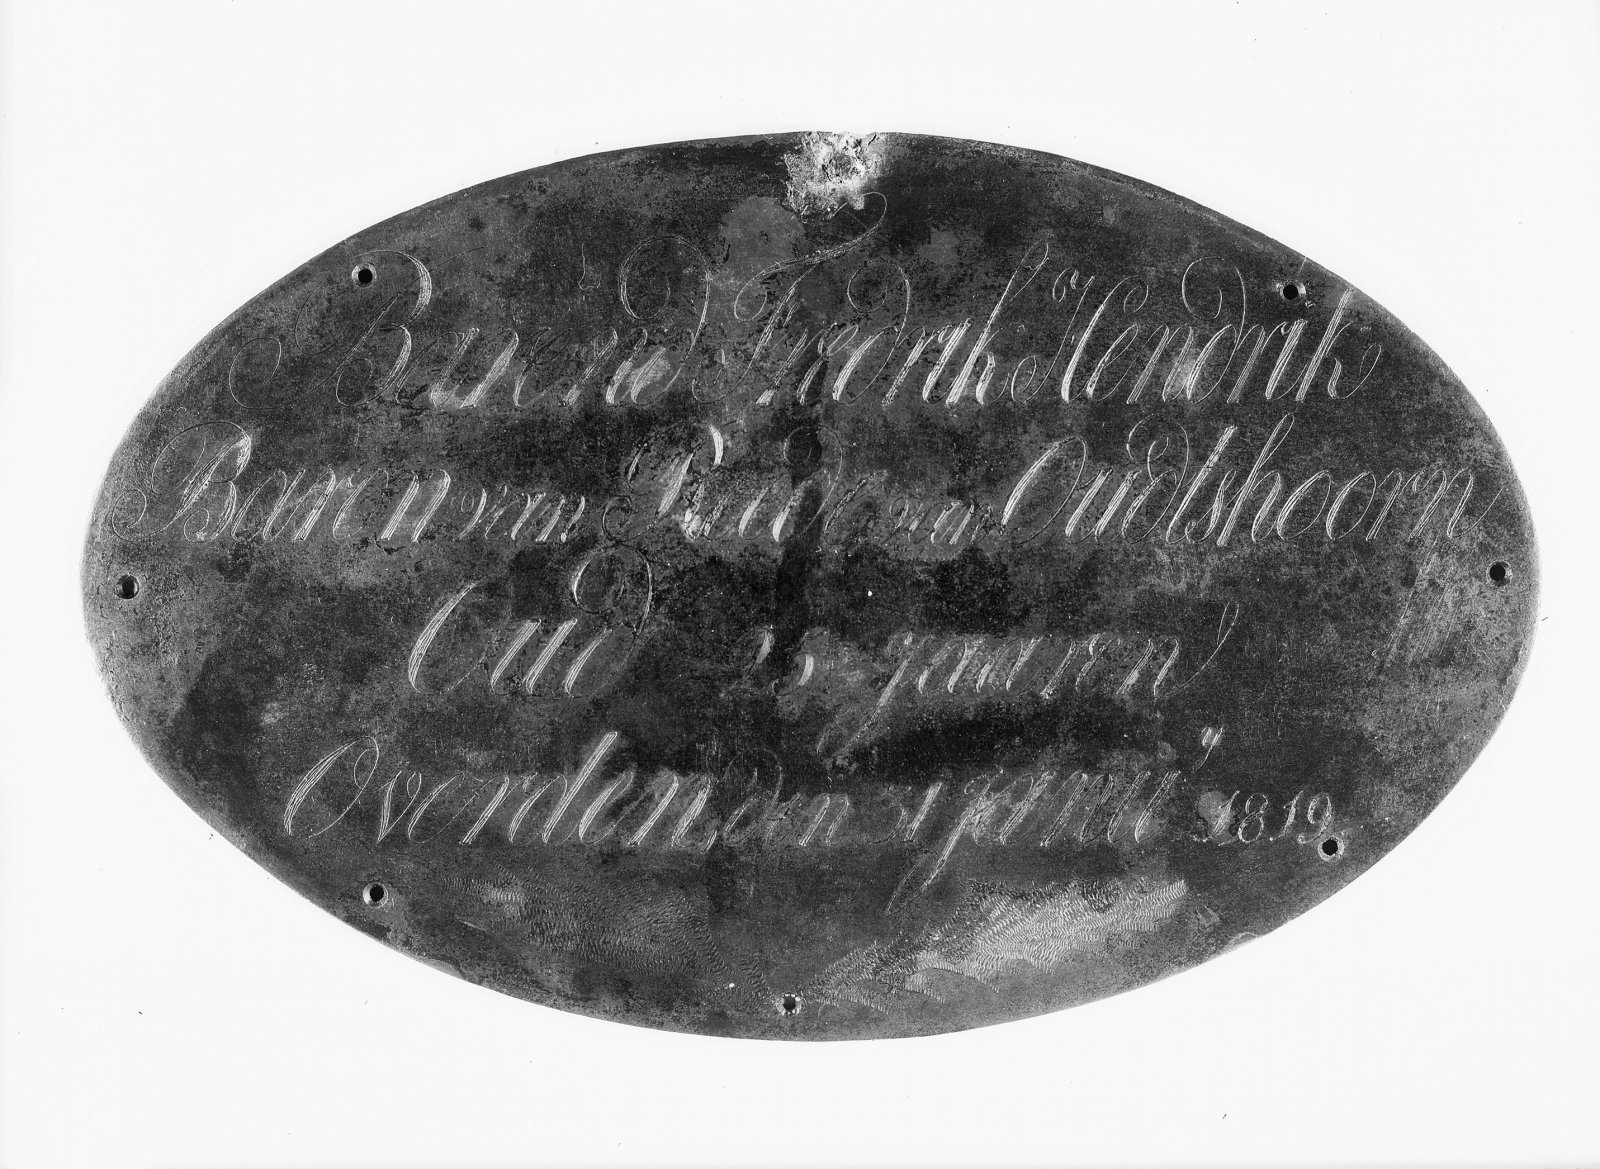 Barend Fredrik Hendrik
Baron van Rede van Oudtshoorn
Oud 25 jaaren
Overden, den 31 janu 1819